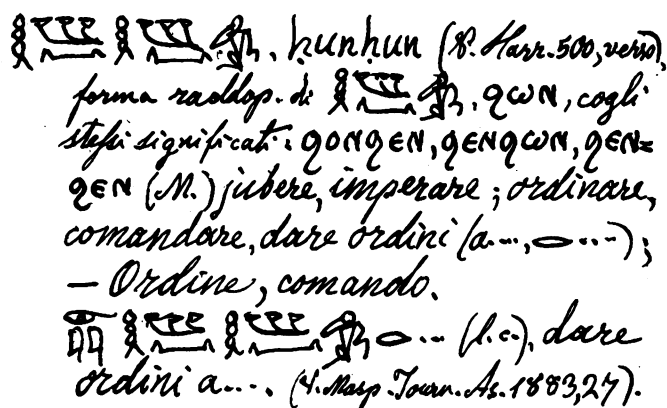 ḥunḥun (P. Harr. 500, verso),
forma raddop. di ϩⲱⲛ, cogli
stessi significati: ϩⲟⲛϩⲉⲛ, ϩⲉⲛϩⲱⲛ, ϩⲉⲛ=
ϩⲉⲛ (M.) jubere, imperare; ordinare,
comandare, dare ordini (a..., 𓂋...);
— Ordine, comando.
𓂋... (l.c.), dare
ordini a.... (V. Masp. Journ. As. 1883, 27).